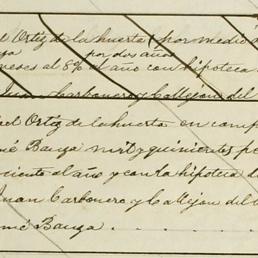 el Ortiz de la huerta (por medio
por dos años
meses al 8% al año con hipoteca
Juan Carbonero y Callejon del
el Ortiz de la huerta en comp
mé Bauza mil y quinientos pe
ciento al año y con la hipoteca d
Juan Carbonero y Callejon del
mé Bauza.